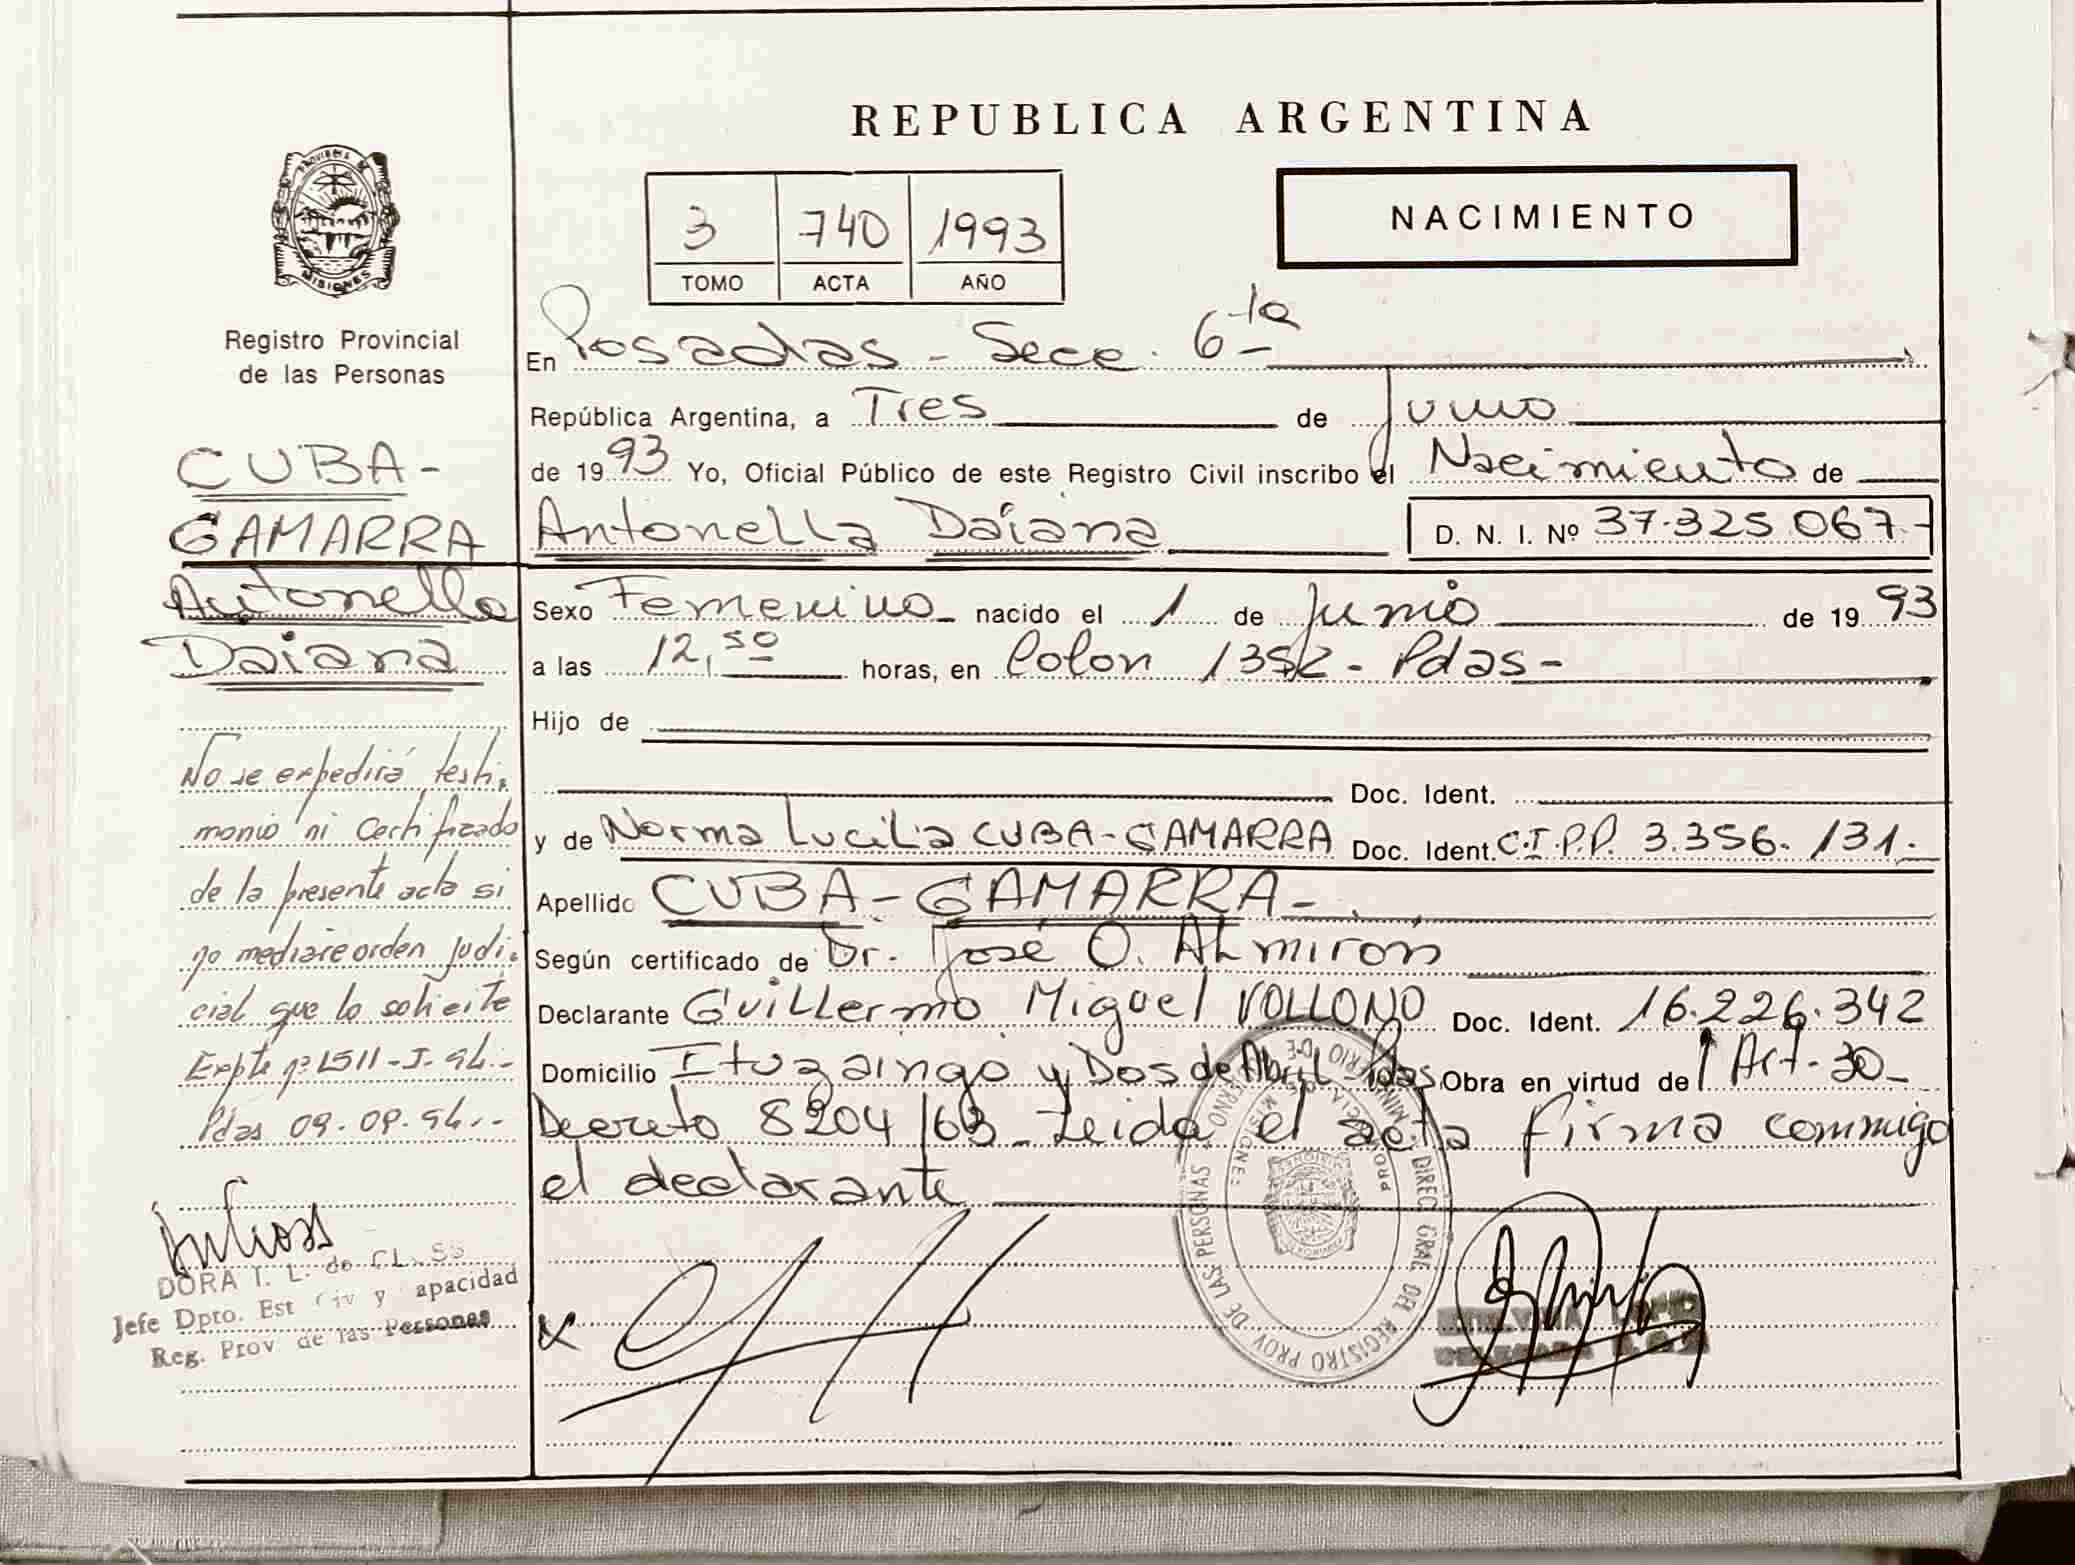 REPUBLICA ARGENTINA
PROVINCIA DE
MISIONES
Registro Provincial
de las Personas
3 740 1993
TOMO ACTA AÑO
NACIMIENTO
En Posadas - Secc. 6-ta
República Argentina, a Tres de Junio
de 1993 Yo, Oficial Público de este Registro Civil inscribo el Nacimiento de
Antonella Daiana D. N. I. Nº 37.325.067-
Sexo Femenino nacido el 1 de Junio de 1993
a las 12,50 horas, en Colon 1352 - Pdas -
Hijo de
Doc. Ident.
y de Norma Lucilia CUBA-GAMARRA Doc. Ident. C.I.P.P. 3.356.131.-
Apellido CUBA-GAMARRA-
Según certificado de Dr. José O. ALmirón
Declarante Guillermo Miguel VOLLONO Doc. Ident. 16.226.342
Domicilio Ituzaingo y Dos de Abril Pdas. Obra en virtud del Art-30-
Decreto 8204/63 - Leida el acta firma conmigo
el declarante
CUBA-
GAMARRA
Antonella
Daiana
No se expedirá testi-
monio ni Certificado
de la presente acta si
no mediare orden judi-
cial que lo solicite
Expte nº 1511-J-94.-
Pdas 09.09.94.-
DORA I. L. de
Jefe Dpto. Est Civ y Capacidad
Reg. Prov. de las Personas
DIREC. GRAL. DEL REGISTRO PROV. DE LAS PERSONAS
MINISTERIO DE GOBIERNO
PROVINCIA DE MISIONES